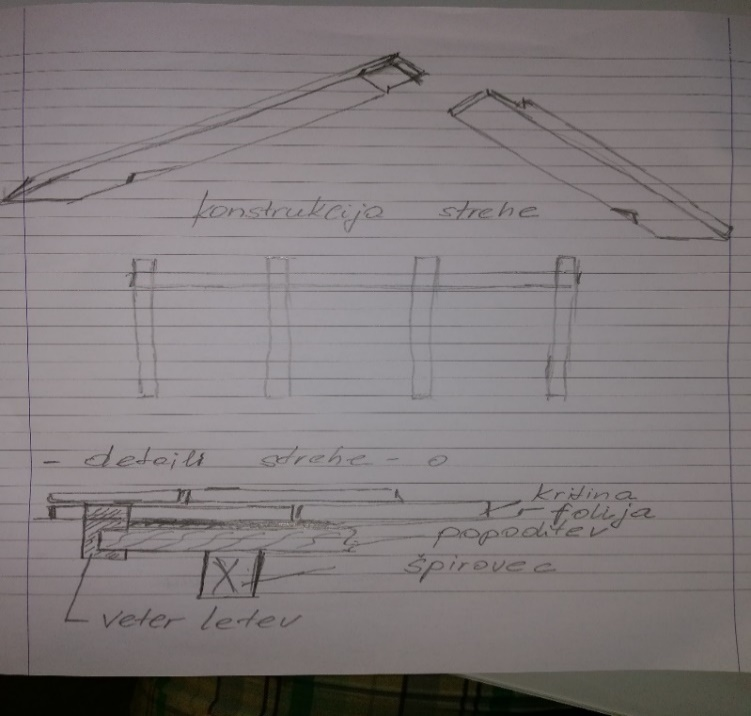 konstrukcija strehe
- detajli strehe - o
kritina
folija
popoditev
špirovec
veter letev